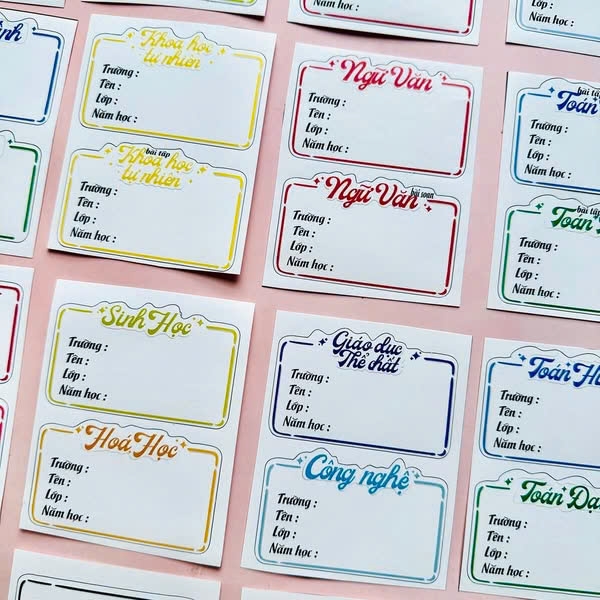 Khoa học
tự nhiên
Trường :
Tên :
Lớp :
Năm học :
bài tập
Khoa học
tự nhiên
Trường :
Tên :
Lớp :
Năm học :
Lớp :
Năm học :
Ngữ Văn
Trường :
Tên :
Lớp :
Năm học :
Ngữ Văn
bài soạn
Trường :
Tên :
Lớp :
Năm học :
Năm học :
bài tập
Toán
Trường :
Tên :
Lớp :
Năm học :
bài tập
Toán
Trường :
Tên :
Lớp :
Năm học :
Sinh Học
Trường :
Tên :
Lớp :
Năm học :
Hoá Học
Trường :
Tên :
Lớp :
Năm học :
Giáo dục
Thể chất
Trường :
Tên :
Lớp :
Năm học :
Công nghệ
Trường :
Tên :
Lớp :
Năm học :
Toán
Trường :
Tên :
Lớp :
Năm học :
Toán
Trường :
Tên :
Lớp :
Năm học :